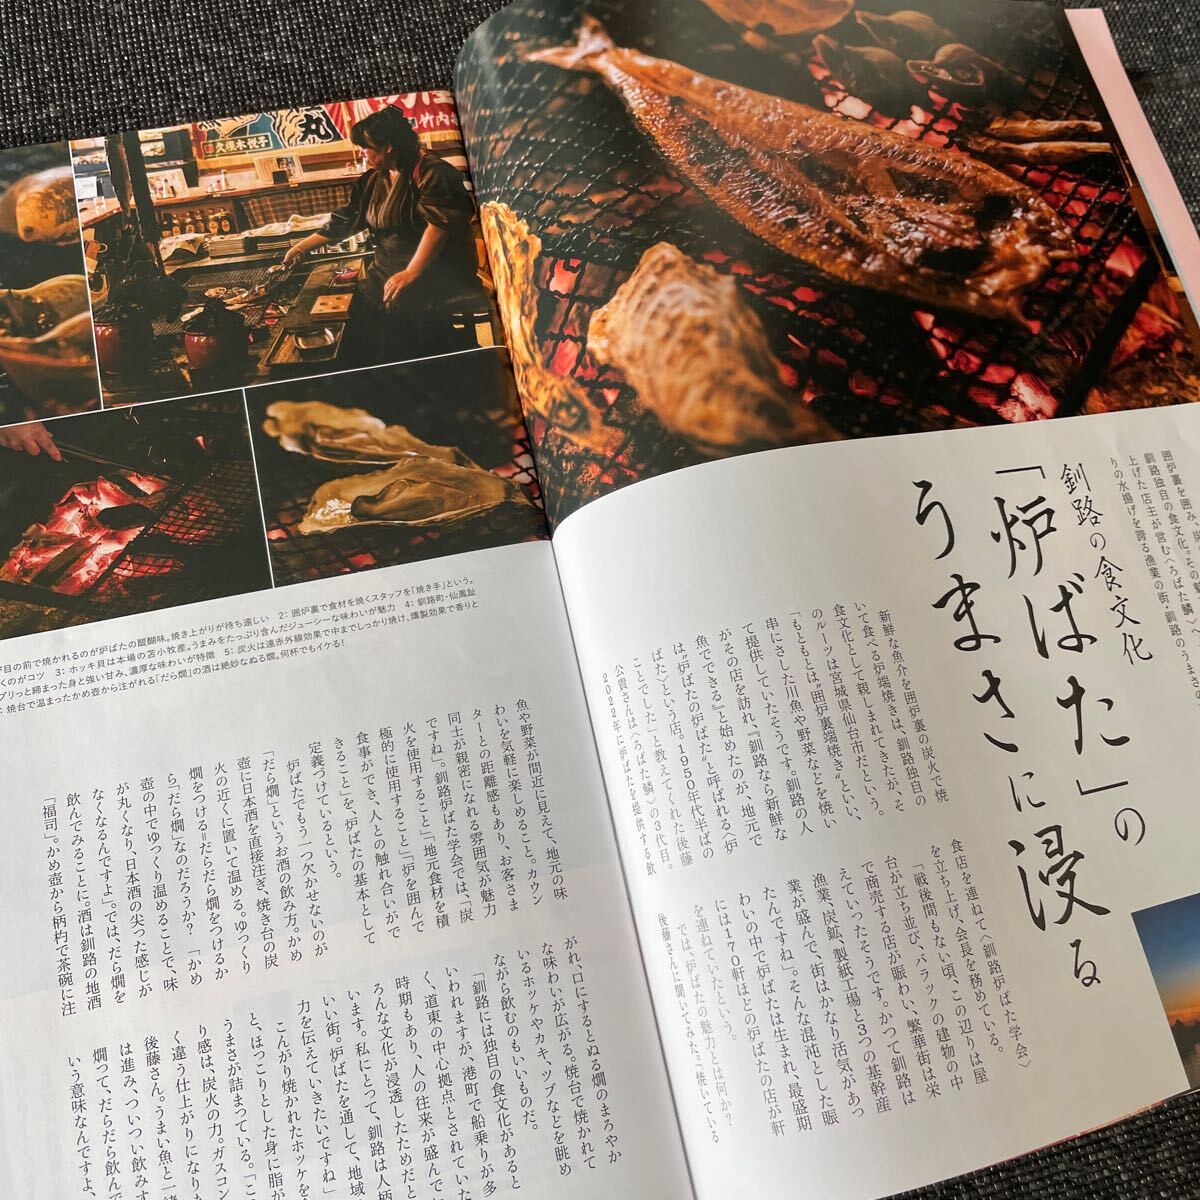 釧路の食文化
「炉ばた」の
うまさに浸る
囲炉裏を囲み、炭
釧路独自の食文化。その魅
上げた店主が営む〈ろばた鱗〉
りの水揚げを誇る漁業の街・釧路のうまさ
新鮮な魚介を囲炉裏の炭火で焼
いて食べる炉端焼きは、釧路独自の
食文化として親しまれてきたが、そ
のルーツは宮城県仙台市だという。
「もともとは“囲炉裏端焼き”といい、
串にさした川魚や野菜などを焼い
て提供していたそうです。釧路の人
がその店を訪れ、『釧路なら新鮮な
魚でできる』と始めたのが、地元で
は“炉ばたの炉ばた”と呼ばれる〈炉
ばた〉という店。1950年代半ばの
ことでした」と教えてくれた後藤
公貴さんは〈ろばた鱗〉の3代目。
2022年に炉ばたを提供する飲
食店を連ねて〈釧路炉ばた学会〉
を立ち上げ、会長を務めている。
「戦後間もない頃、この辺りは屋
台が立ち並び、バラックの建物の中
で商売する店が賑わい、繁華街は栄
えていったそうです。かつて釧路は
漁業、炭鉱、製紙工場と3つの基幹産
業が盛んで、街はかなり活気があっ
たんですね」。そんな混沌とした賑
わいの中で炉ばたは生まれ、最盛期
には170軒ほどの炉ばたの店が軒
を連ねていたという。
では、炉ばたの魅力とは何か？
後藤さんに聞いてみた。「焼いている
魚や野菜が間近に見えて、地元の味
わいを気軽に楽しめること。カウン
ターとの距離感もあり、お客さま
同士が親密になれる雰囲気が魅力
ですね」。釧路炉ばた学会では、「炭
火を使用すること」「地元食材を積
極的に使用すること」「炉を囲んで
食事ができ、人との触れ合いがで
きること」を、炉ばたの基本として
定義づけているという。
炉ばたでもう一つ欠かせないのが
「だら燗」というお酒の飲み方。かめ
壺に日本酒を直接注ぎ、焼き台の炭
火の近くに置いて温める。ゆっくり
燗をつける=だらだら燗をつけるか
ら「だら燗」なのだろうか？ 「かめ
壺の中でゆっくり温めることで、味
が丸くなり、日本酒の尖った感じが
なくなるんですよ」。では、だら燗を
飲んでみることに。酒は釧路の地酒
「福司」。かめ壺から柄杓で茶碗に注
がれ、口にするとぬる燗のまろやか
な味わいが広がる。焼台で焼かれて
いるホッケやカキ、ツブなどを眺め
ながら飲むのもいいものだ。
「釧路には独自の食文化があると
いわれますが、港町で船乗りが多
く、道東の中心拠点とされていた
時期もあり、人の往来が盛んで
ろんな文化が浸透したためだと
います。私にとって、釧路は人柄
いい街。炉ばたを通して、地域
力を伝えていきたいですね」
こんがり焼かれたホッケを
と、ほっこりとした身に脂が
うまさが詰まっている。「こ
り感は、炭火の力。ガスコン
く違う仕上がりになりも
後藤さん。うまい魚と一緒
は進み、ついつい飲みす
燗って、だらだら飲んで
いう意味なんですよ、
が目の前で焼かれるのが炉ばたの醍醐味。焼き上がりが待ち遠しい　2：囲炉裏で食材を焼くスタッフを「焼き手」という。
くのがコツ　3：ホッキ貝は本場の苫小牧産。うまみをたっぷり含んだジューシーな味わいが魅力　4：釧路町・仙鳳趾
プリっと締まった身と強い甘み、濃厚な味わいが特徴　5：炭火は遠赤外線効果で中までしっかり焼け、燻製効果で香りと
：焼台で温まったかめ壺から注がれる「だら燗」の酒は絶妙なぬる燗。何杯でもイケる！
丸
久積木悦子
竹内